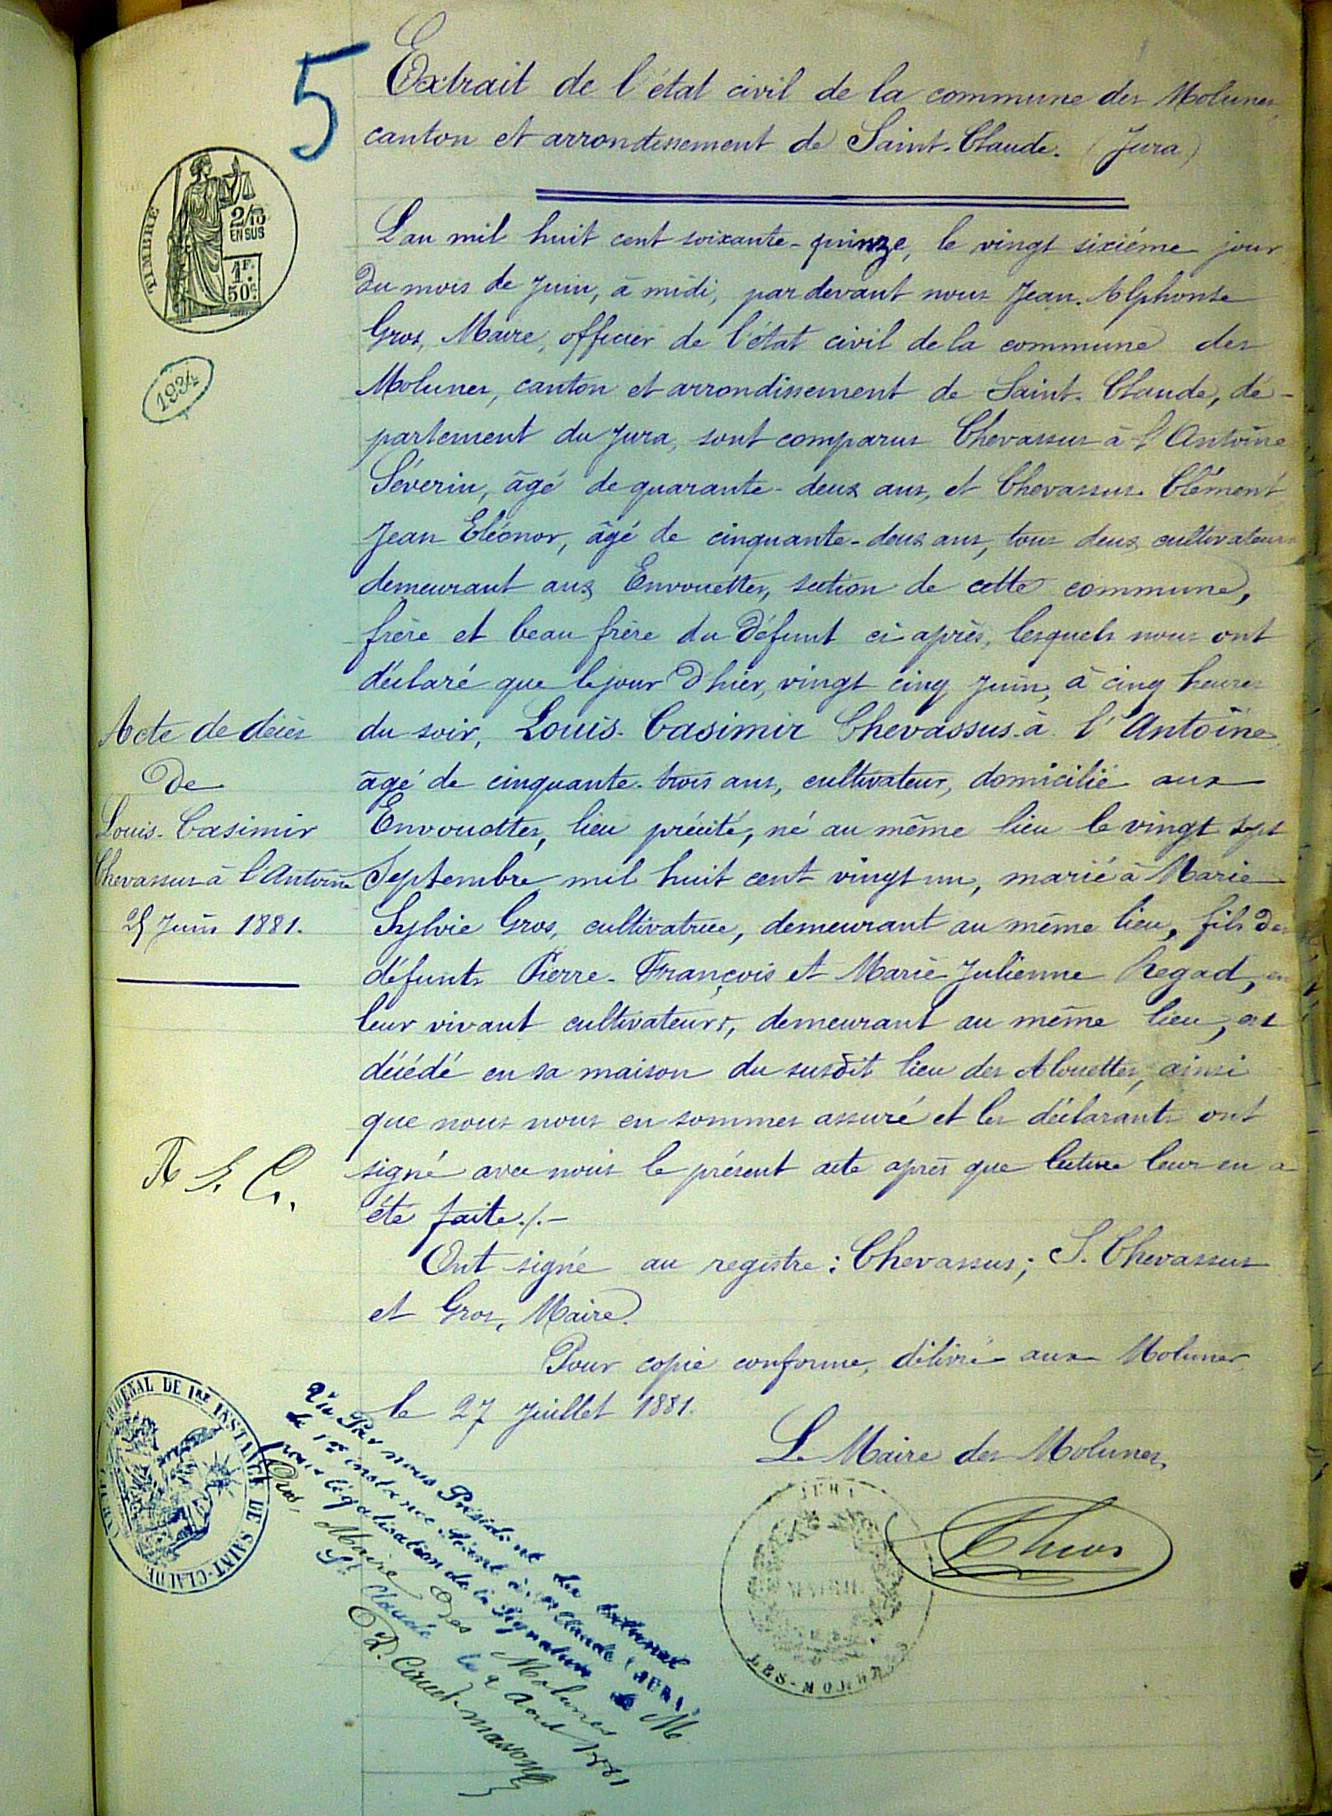 5
Extrait de l'état civil de la commune des Molunes,
canton et arrondissement de Saint-Claude. (Jura)
TIMBRE
2/10
EN SUS
1F.
50c.
1934
L'an mil huit cent soixante-quinze, le vingt sixième jour
du mois de Juin, à midi, par devant nous Jean-Alphonse
Gros, Maire, officier de l'état civil de la commune des
Molunes, canton et arrondissement de Saint-Claude, dé-
partement du Jura, sont comparus Chevassus à l'Antoine
Séverin, âgé de quarante-deux ans, et Chevassus Clément
Jean Eléonor, âgé de cinquante-deux ans, tous deux cultivateurs
demeurant aux Envouettes, section de cette commune,
frère et beau frère du défunt ci après, lesquels nous ont
déclaré que le jour d'hier, vingt cinq Juin, à cinq heures
du soir, Louis-Casimir Chevassus-à l'Antoine
âgé de cinquante-trois ans, cultivateur, domicilié aux
Envouettes, lieu précité, né au même lieu le vingt sept
Septembre mil huit cent vingt un, marié à Marie
Sylvie Gros, cultivatrice, demeurant au même lieu, fils des
défunts Pierre-François et Marie Julienne Regad, en
leur vivant cultivateurs, demeurant au même lieu, est
décédé en sa maison du susdit lieu des Alouettes, ainsi
que nous nous en sommes assuré et les déclarants ont
signé avec nous le présent acte après que lecture leur en a
été faite./.-
Ont signé au registre: Chevassus; S. Chevassus
et Gros, Maire.
Pour copie conforme, délivré aux Molunes
le 27 Juillet 1881.
Le Maire des Molunes,
Acte de décès
de
Louis-Casimir
Chevassus à l'Antoine
25 Juin 1881.
TRIBUNAL DE 1RE INSTANCE DE SAINT-CLAUDE
Vu Par nous Président du tribunal
de 1re instance séant à St Claude (JURA)
pour légalisation de la Signature de M
Gros, Maire des Molunes
St Claude le 2 Aout 1881
JURA
MAIRIE
LES-MOLUNES